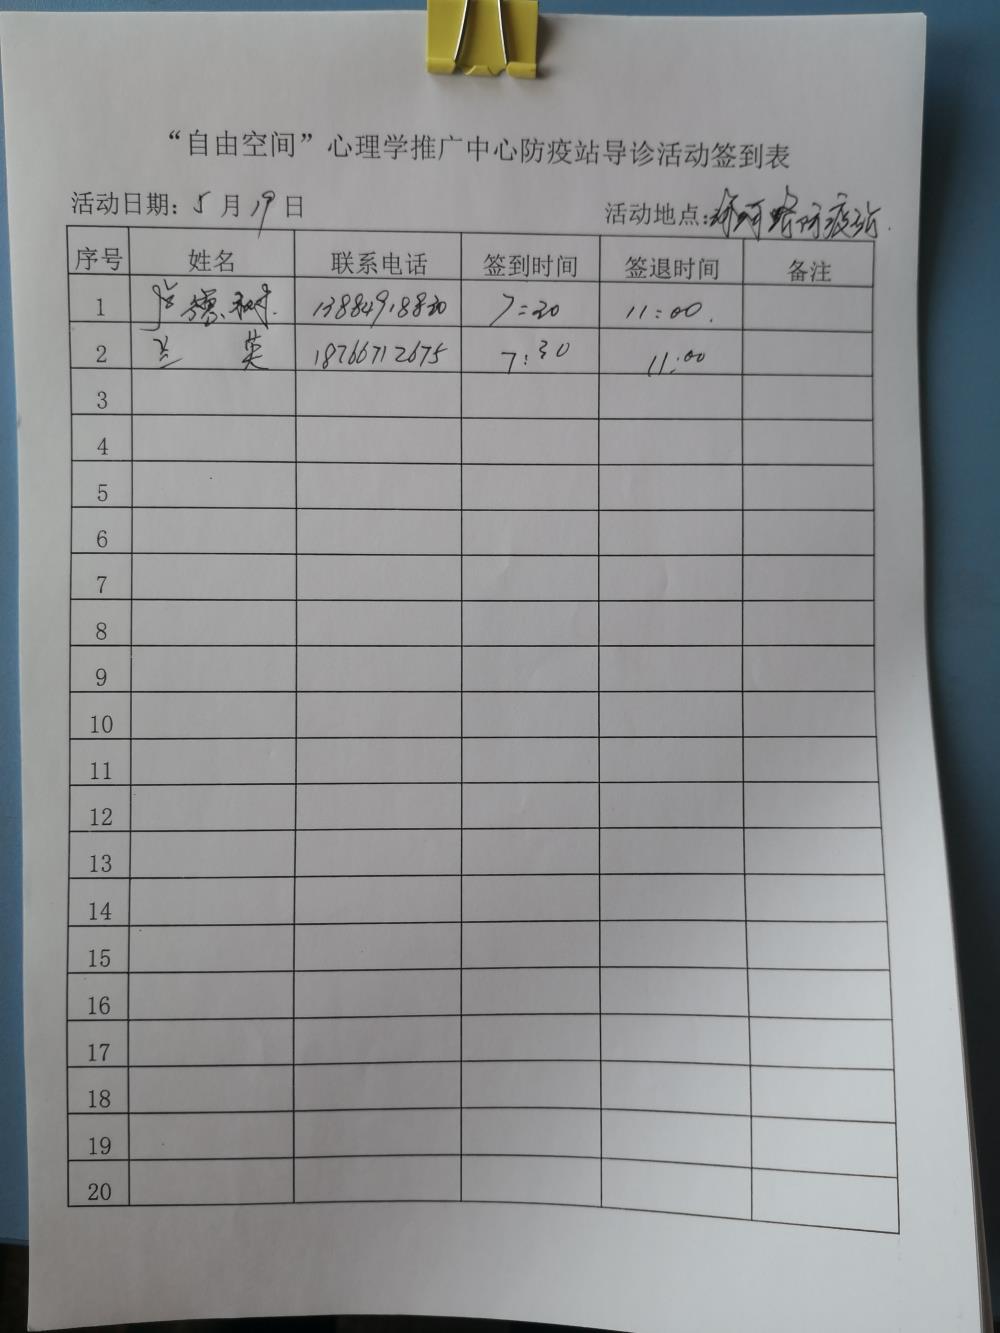 “自由空间”心理学推广中心防疫站导诊活动签到表
活动日期：5月19日 活动地点：防疫站
序号 姓名 联系电话 签到时间 签退时间 备注
1 13884918830 7:30 11:00.
2 兰英 18766712675 7:30 11:00
3
4
5
6
7
8
9
10
11
12
13
14
15
16
17
18
19
20